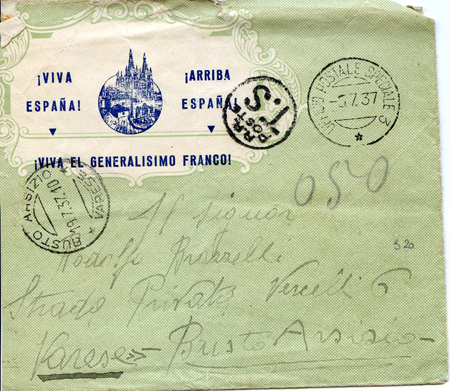 ¡VIVA ESPAÑA!
¡ARRIBA ESPAÑA!
¡VIVA EL GENERALISIMO FRANCO!
UFFICIO POSTALE SPECIALE 3
-5.7.37
I.S.
R.R. POSTE
BUSTO ARSIZIO
19.7.37.10
* VARESE
050
S 20
Al Signor
Rodolfo
Strada Privata Vercelli 6
Varese
Busto Arsizio